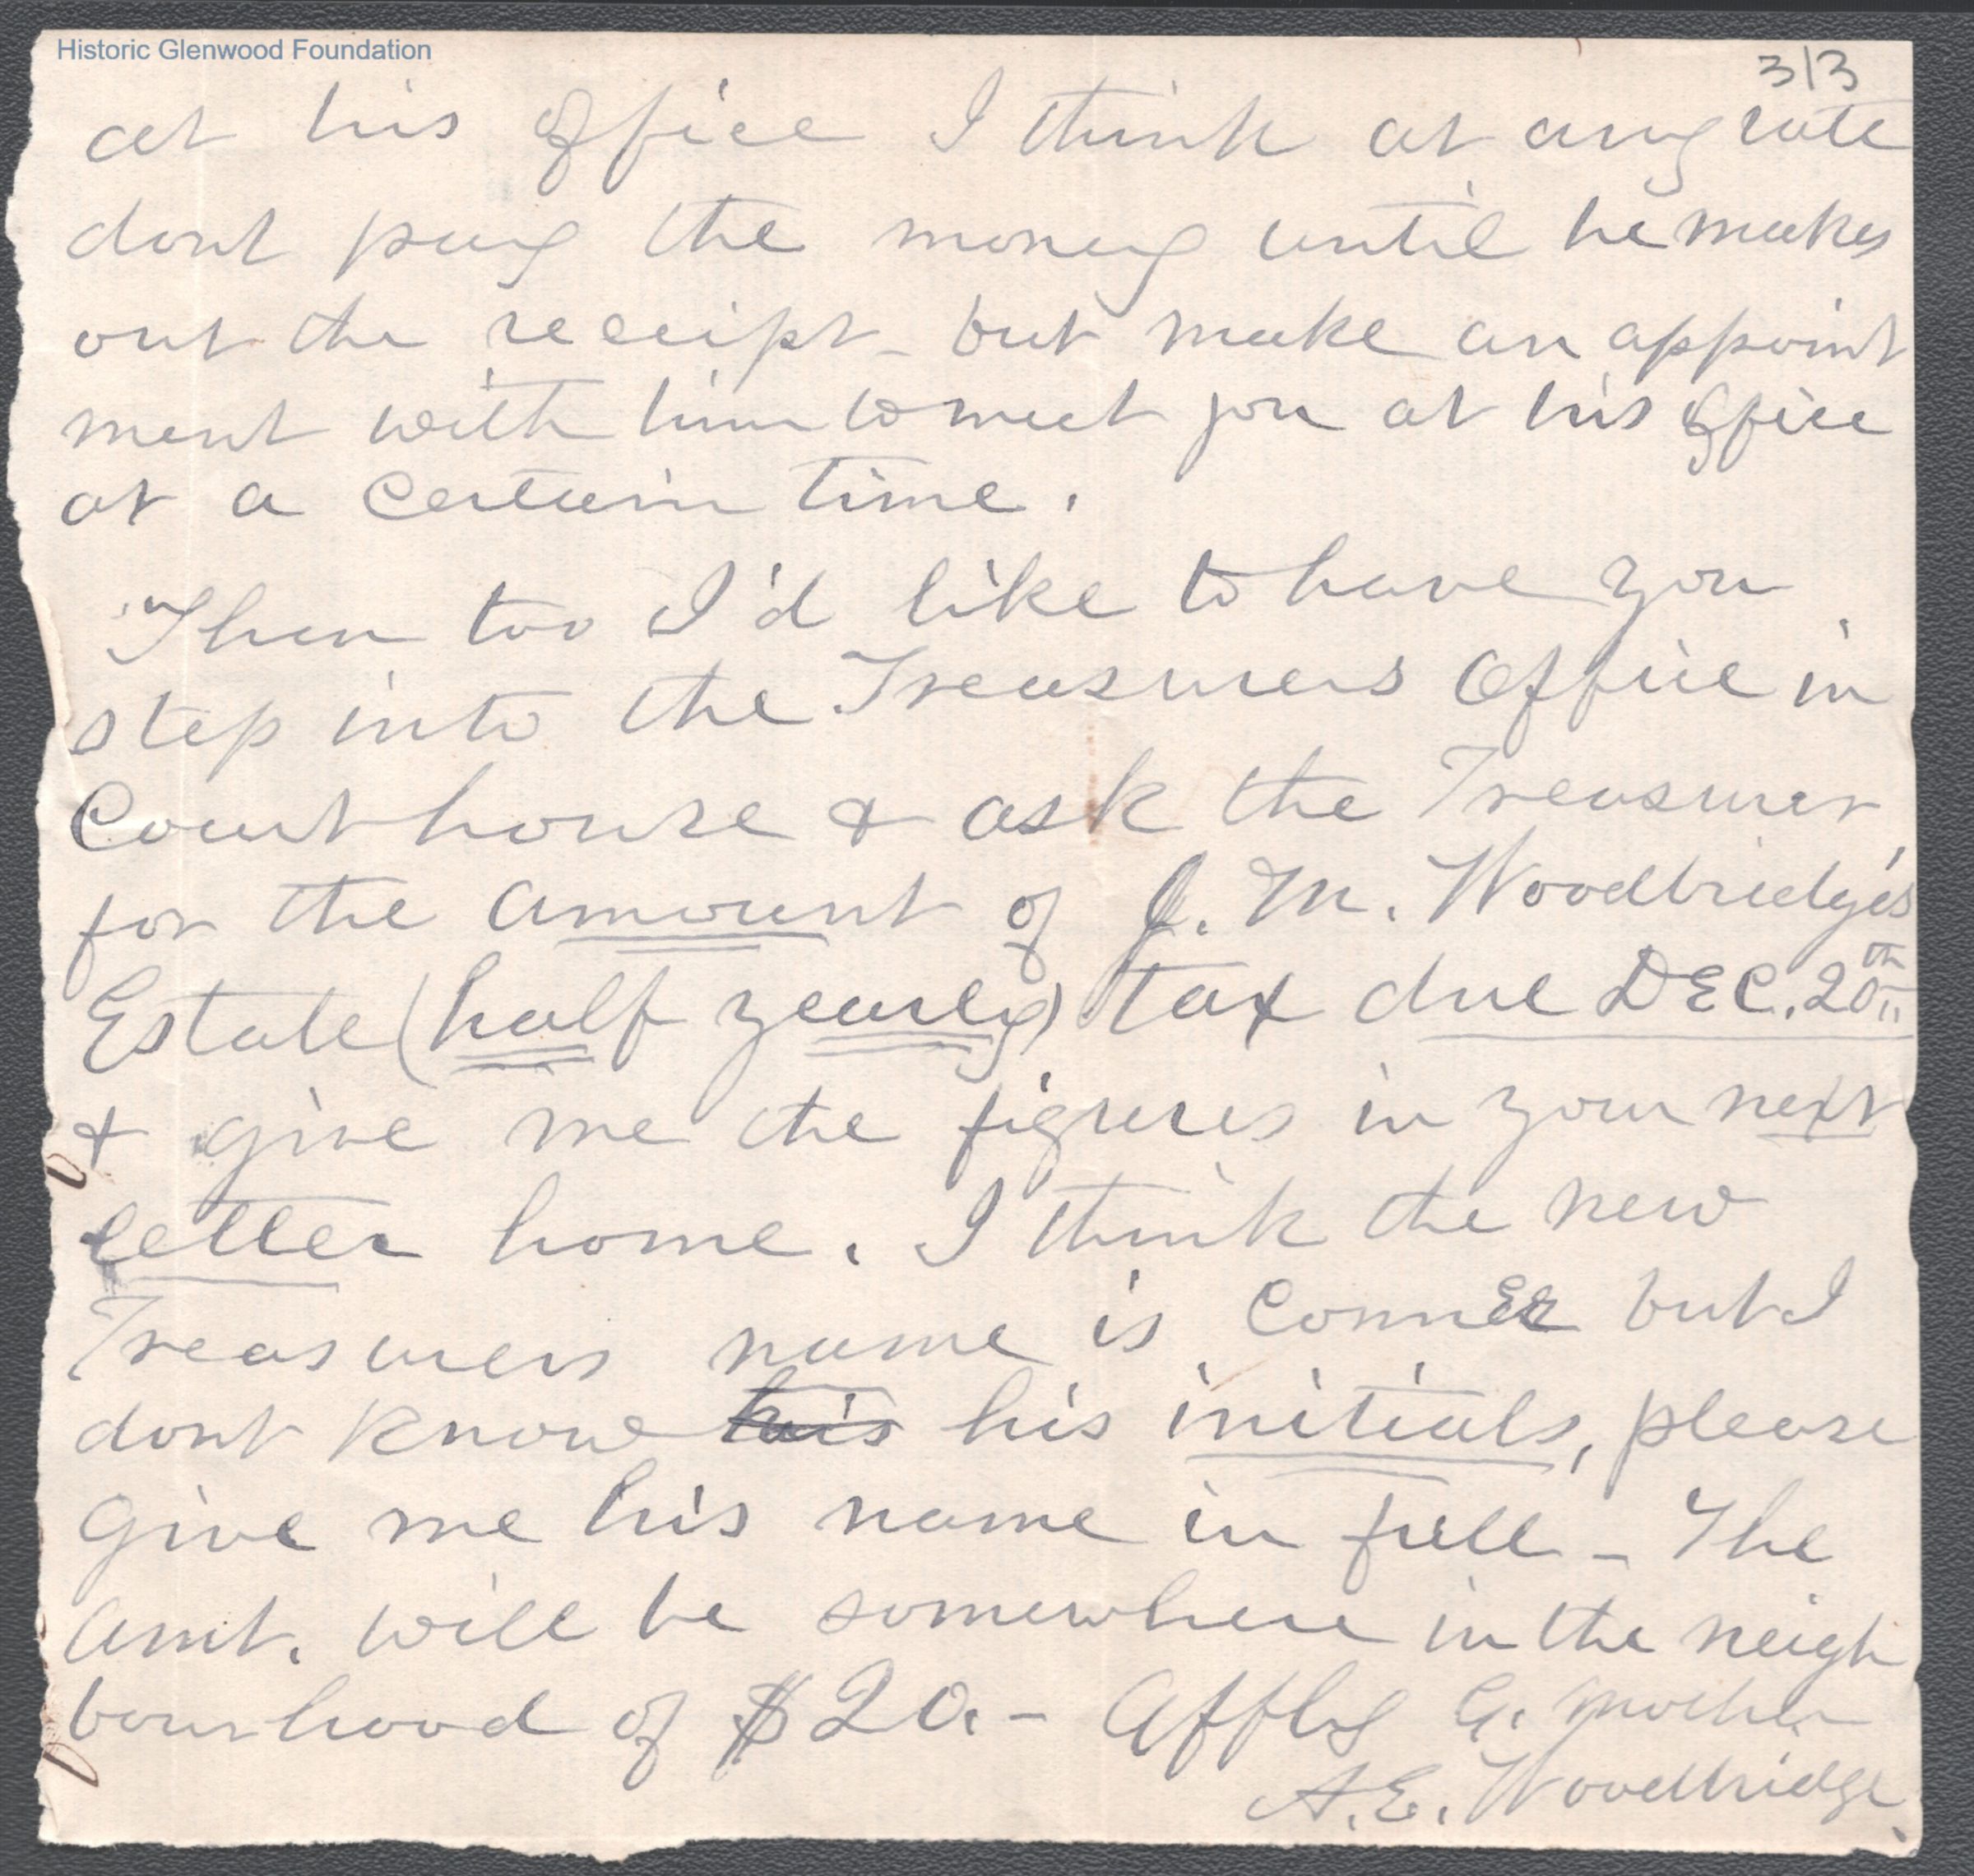 Historic Glenwood Foundation
3/3
at his office I think at any rate
dont pay the money until he makes
out the receipt - but make an appoint
ment with him to meet you at his office
at a certain time.
Then too I'd like to have you
step into the Treasurers Office in
Court house & ask the Treasurer
for the amount of J. M. Woodbridge's
Estate (half yearly) tax due DEC. 20th
& give me the figures in your next
letter home. I think the new
Treasurers name is ConnER but I
dont know his his initials, please
give me his name in full - The
amt. will be somewhere in the neigh
bourhood of $20. - Affly G. Mother
A. E. Woodbridge.